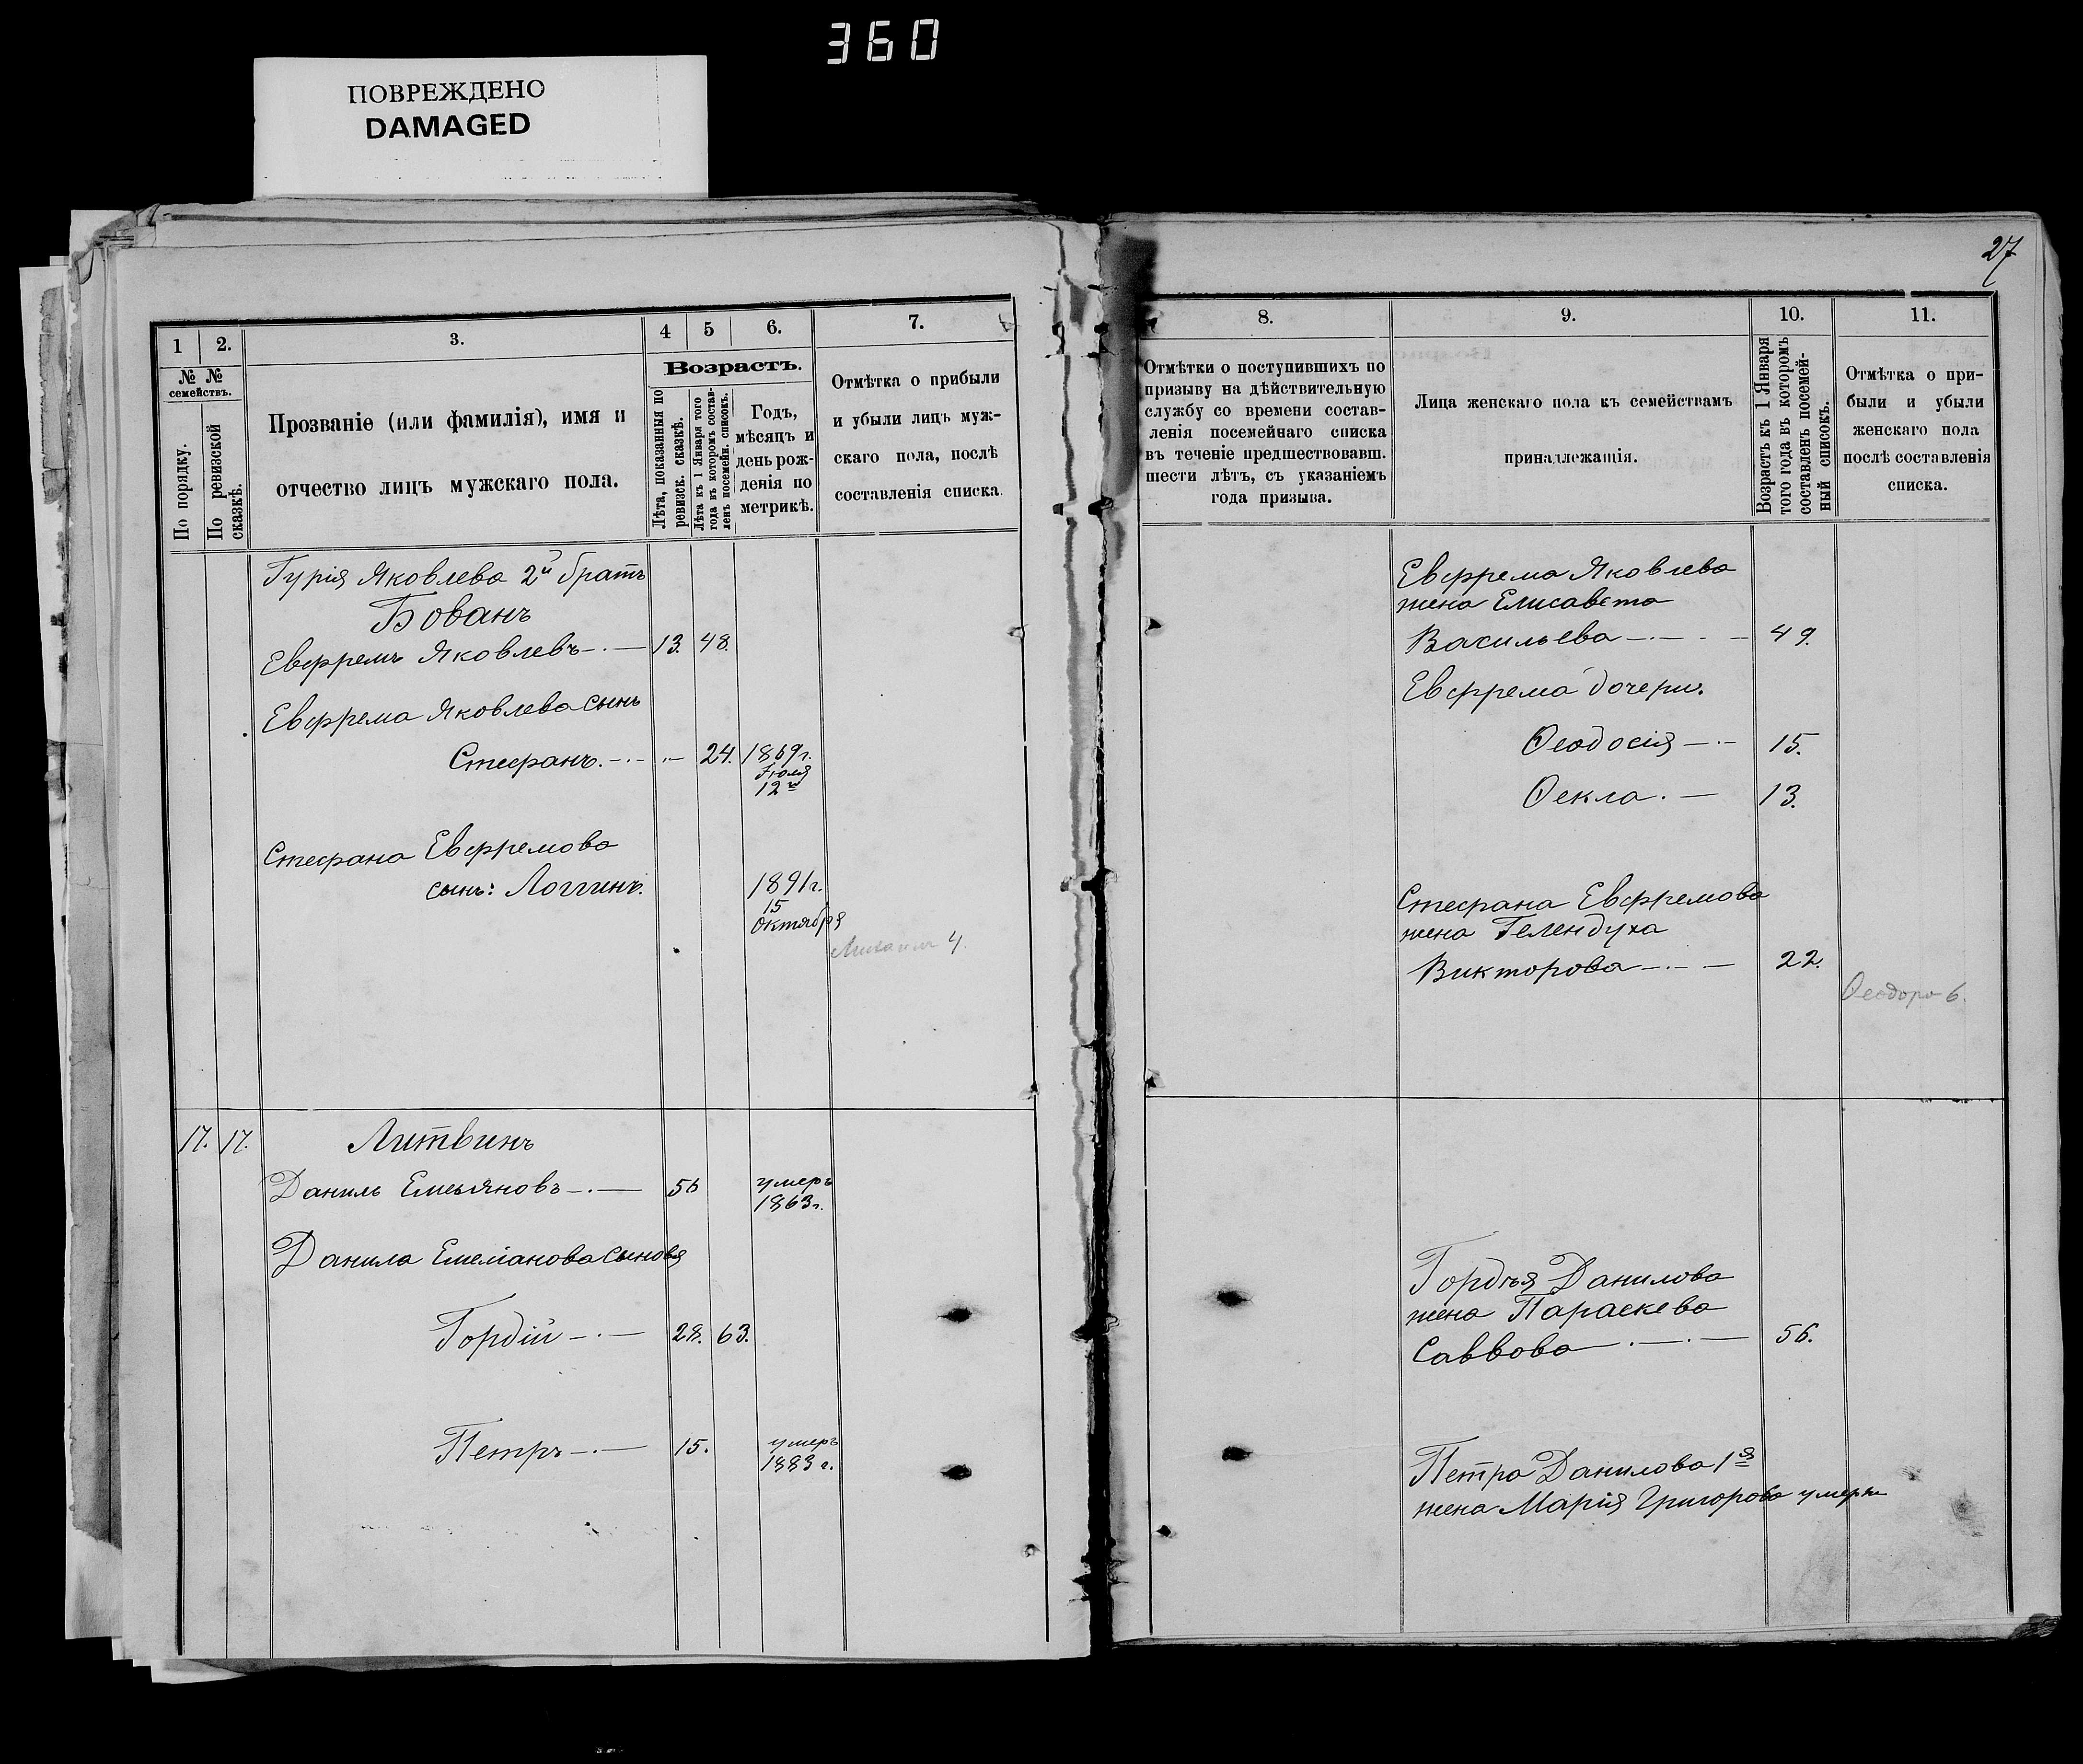 360
ПОВРЕЖДЕНО
DAMAGED
27
1
2.
3.
4
5
6.
7.
№ №
семействъ.
По порядку.
По ревизской
сказкѣ.
Прозваніе (или фамилія), имя и
отчество лицъ мужскаго пола.
Возрастъ.
Лѣта, показанныя по
ревизск. сказкѣ.
Лѣта къ 1 Января того
года въ которомъ состав-
ленъ посемейн. списокъ.
Годъ,
мѣсяцъ и
день рож-
денія по
метрикѣ.
Отмѣтка о прибыли
и убыли лицъ муж-
скаго пола, послѣ
составленія списка.
Гурія Яковлева 2й братъ
Бованъ
Евфремъ Яковлевъ 13. 48.
Евфрема Яковлева сынъ
Стефанъ. 24. 1869г.
Іюля
12го
Стефана Евфремова
сынъ: Логгинъ. 1891г.
15
Октября
Михаилъ 4
17. 17. Литвинъ
Данилъ Емельяновъ 56 умеръ
1863г.
Данила Емеліанова сыновья
Гордій 28. 63.
Петръ 15. умеръ
1883г.
8.
9.
10.
11.
Отмѣтки о поступившихъ по
призыву на дѣйствительную
службу со времени состав-
ленія посемейнаго списка
въ теченіе предшествовавш.
шести лѣтъ, съ указаніемъ
года призыва.
Лица женскаго пола къ семействамъ
принадлежащія.
Возрастъ къ 1 Января
того года въ которомъ
составленъ посемей-
ный списокъ.
Отмѣтка о при-
были и убыли
женскаго пола
послѣ составленія
списка.
Евфрема Яковлева
жена Елисавета
Васильева 49.
Евфрема дочери.
Ѳеодосія 15.
Ѳекла. 13.
Стефана Евфремова
жена Гелендуха
Викторова 22.
Ѳеодора 6.
Гордѣя Данилова
жена Параскева
Саввова 56.
Петра Данилова 1я
жена Марія Григорова умерла